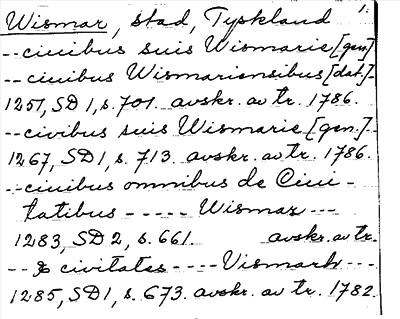 1.
Wismar, stad, Tyskland
-- ciuibus suis Wismarie [gen.]
-- ciuibus Wismariensibus [dat.]
1251, SD 1, s. 701. avskr. av tr. 1786.
-- civibus suis Wismarie [gen.]
1267, SD 1, s. 713. avskr. av tr. 1786.
-- ciuibus omnibus de Ciui-
tatibus ----- Wismar ---
1283, SD 2, s. 661. avskr. av tr.
-- & civitates ---- Vismarh ---
1285, SD 1, s. 673. avskr. av tr. 1782.